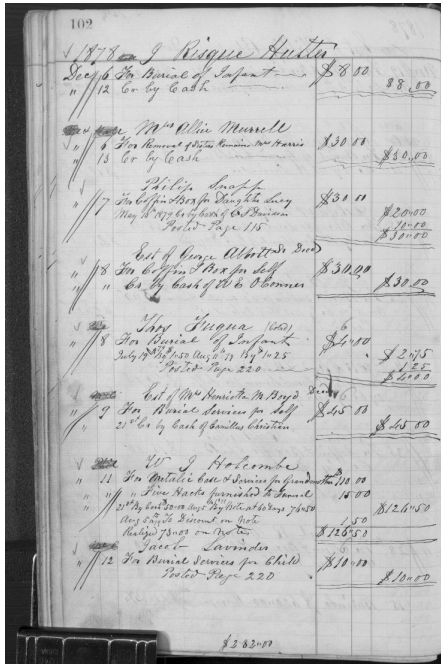 102
1878 J Risque Hutter
Decr 6 For Burial of Infant $8.00
" 12 Cr by Cash $8.00
Mrs Allie Murrell
" 6 For Removal of Sisters Remains Mrs Harris $30.00
" 13 Cr by Cash $30.00
Philip Snapp
" 7 For Coffin & Box for Daughter Lucy $30.00
May 15" 1879 Cr by Cash of C F Davidson $20.00
Posted Page 115 10.00
$30.00
Est of George Abbott Sr Decd
" 8 For Coffin & Box for Self $30.00
" " Cr By Cash of W E OConner $30.00
Thos Fuqua (Cold)
" 8 For Burial of Infant $4.00
July 19th By 1.50 Aug 11" 79 By 1.25 $2.75
Posted Page 220 1.25
$4.00
Est of Mrs Henrietta M Boyd Decd
" 9 For Burial Services for Self $45.00
21st Cr by Cash of Camillus Christian $45.00
W J Holcombe
" 11 For Metalic Case & Services for Grandmother 110.00
" " " Five Hacks furnished to Funeral 15.00
21st By Cash 50.00 Aug 5 By Note at 60 days 76.50 $126.50
Aug 5 To Discount on Note 1.50
Realized 75.00 on Note $126.50
Jacob Lavinder
" 12 For Burial Services for Child $10.00
Posted Page 220 $10.00
$282.00